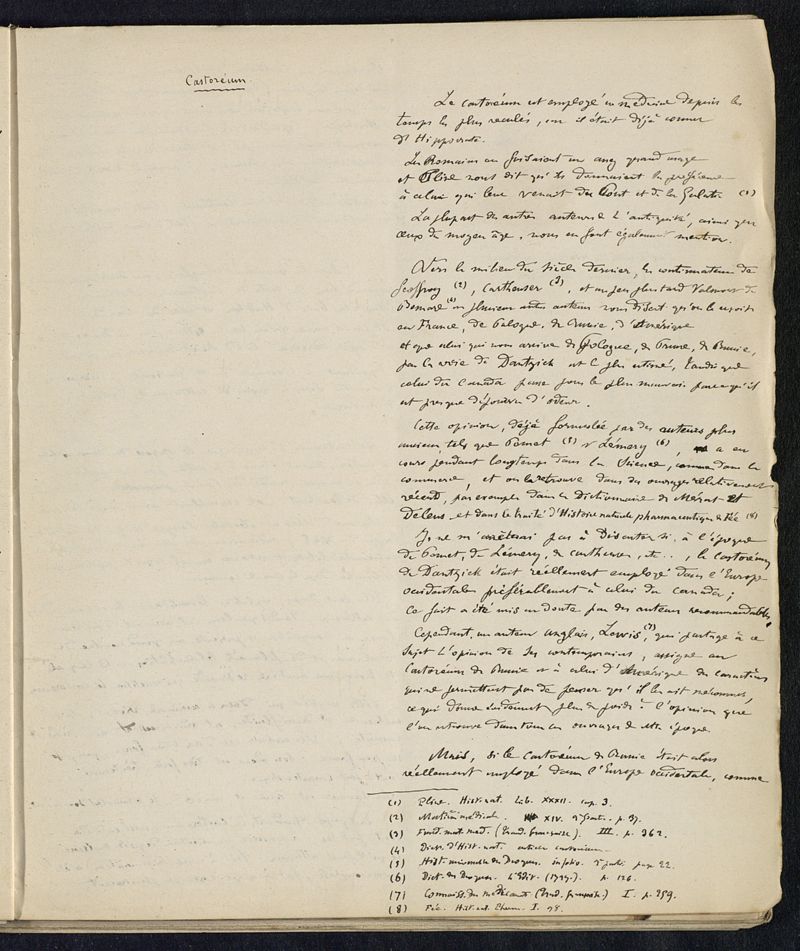 Castoréum
Le castoréum est employé en médecine depuis les
temps les plus reculés, car il était déjà connu
d'Hippocrate.
Les Romains en faisaient un assez grand usage
et Pline nous dit qu'ils donnaient la préférence
à celui qui leur venait du Pont et de la Galatie (1)
La plupart des autres auteurs de l'antiquité, ainsi que
ceux du moyen âge, nous en font également mention.
Vers le milieu du siècle dernier, les continuateurs de
Geoffroy (2), Cartheuser (3), et un peu plus tard Valmont de
Bomare (4) et plusieurs autres auteurs nous disent qu'on le reçoit
en France, de Pologne, de Russie, d'Amérique
et que celui qui nous arrive de Pologne, de Prusse, de Russie,
par la voie de Dantzick est le plus estimé, tandis que
celui du Canada passe pour le plus mauvais parce qu'il
est presque dépourvu d'odeur.
Cette opinion, déjà formulée par des auteurs plus
anciens, tels que Pomet (5) & Lémery (6), a eu
cours pendant longtemps dans la Science, comme dans le
commerce, et on la retrouve dans des ouvrages relativement
récents, par exemple dans le Dictionnaire de Mérat et
Delens et dans le traité d'Histoire naturelle pharmaceutique de Fée (8)
Je ne m'arrêterai pas à discuter si, à l'époque
de Pomet, de Lémery, de Cartheuser, etc.., le castoréum
de Dantzick était réellement employé dans l'Europe
occidentale préférablement à celui du Canada;
ce fait a été mis en doute par des auteurs recommandables.
Cependant, un auteur anglais, Lewis, (7) qui partage à ce
sujet l'opinion de ses contemporains, assigne au
Castoréum de Russie et à celui d'Amérique des caractères
qui ne permettent pas de penser qu'il les ait méconnus,
ce qui donne évidemment plus de poids à l'opinion que
l'on retrouve dans tous les ouvrages de cette époque.
Mais, si le Castoréum de Russie était alors
réellement employé dans l'Europe occidentale, comme
(1) Pline. Hist. nat. Lib. XXXII. cap. 3.
(2) Matière médicale. XIV. p. 37.
(3) Fond. mat. med. (Trad. française). III. p. 362.
(4) Dict. d'Hist. nat. article castoréum.
(5) Hist. des Drogues. in folio. 2e partie page 22.
(6) Dict. des Drogues. p. 126.
(7) Connaiss. des médicaments (Trad. française) I. p. 259.
(8) Fée. Hist. nat. Pharm. I. 98.